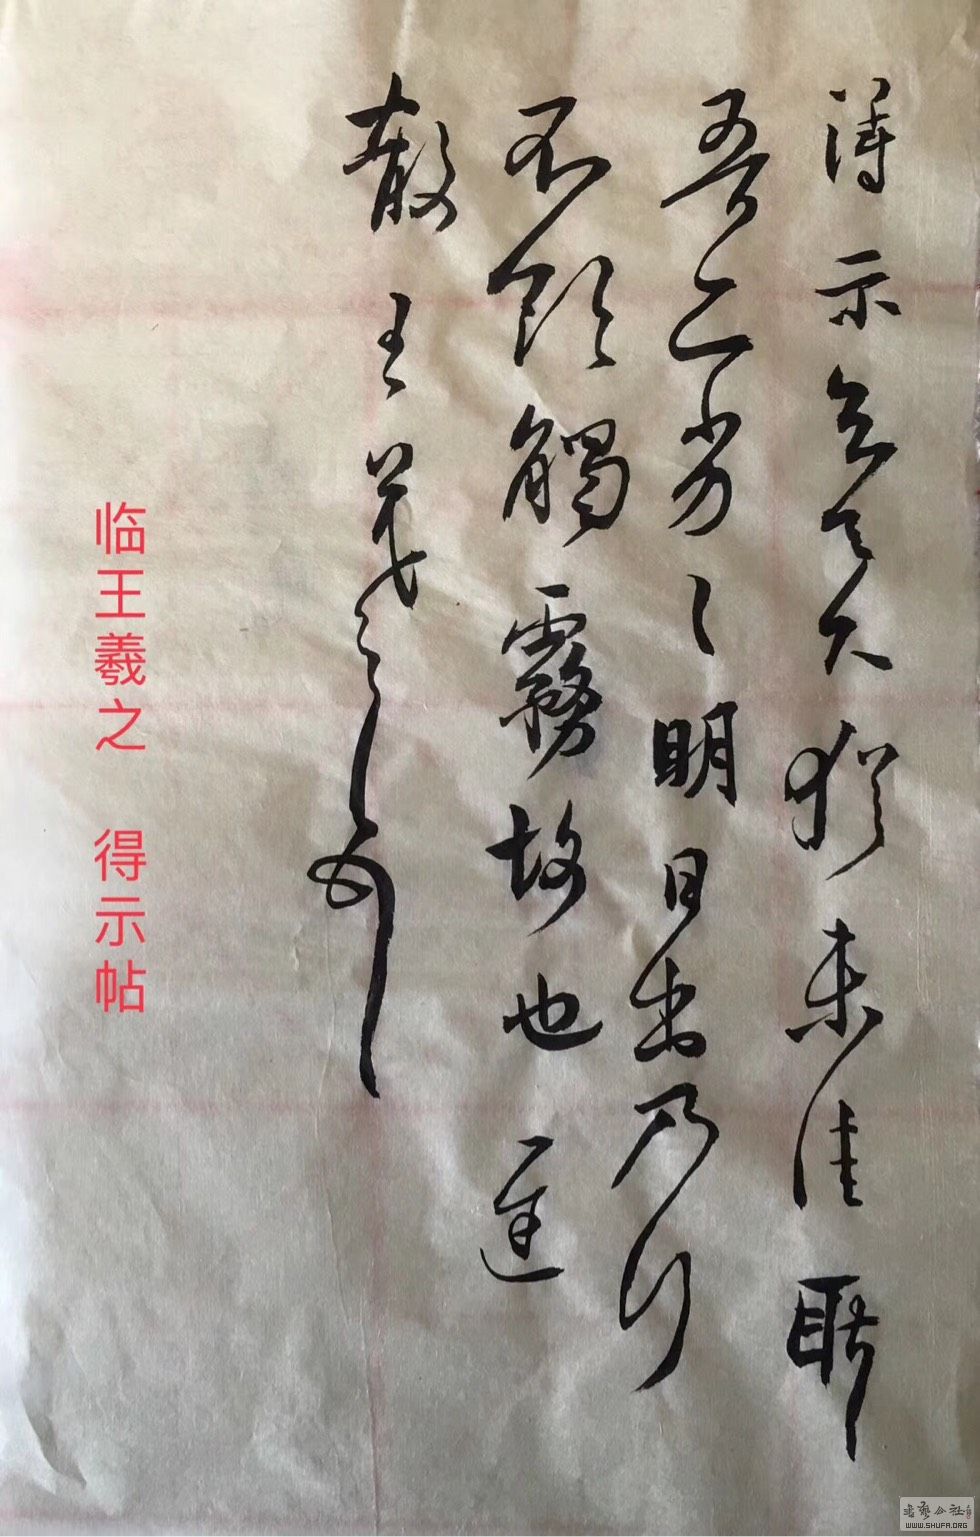 得示知足下猶未佳耿〻
吾亦劣〻明日出乃行
不欲觸霧故也遲
散王羲之頓首
临王羲之 得示帖
書藝公社
WWW.SHUFA.ORG